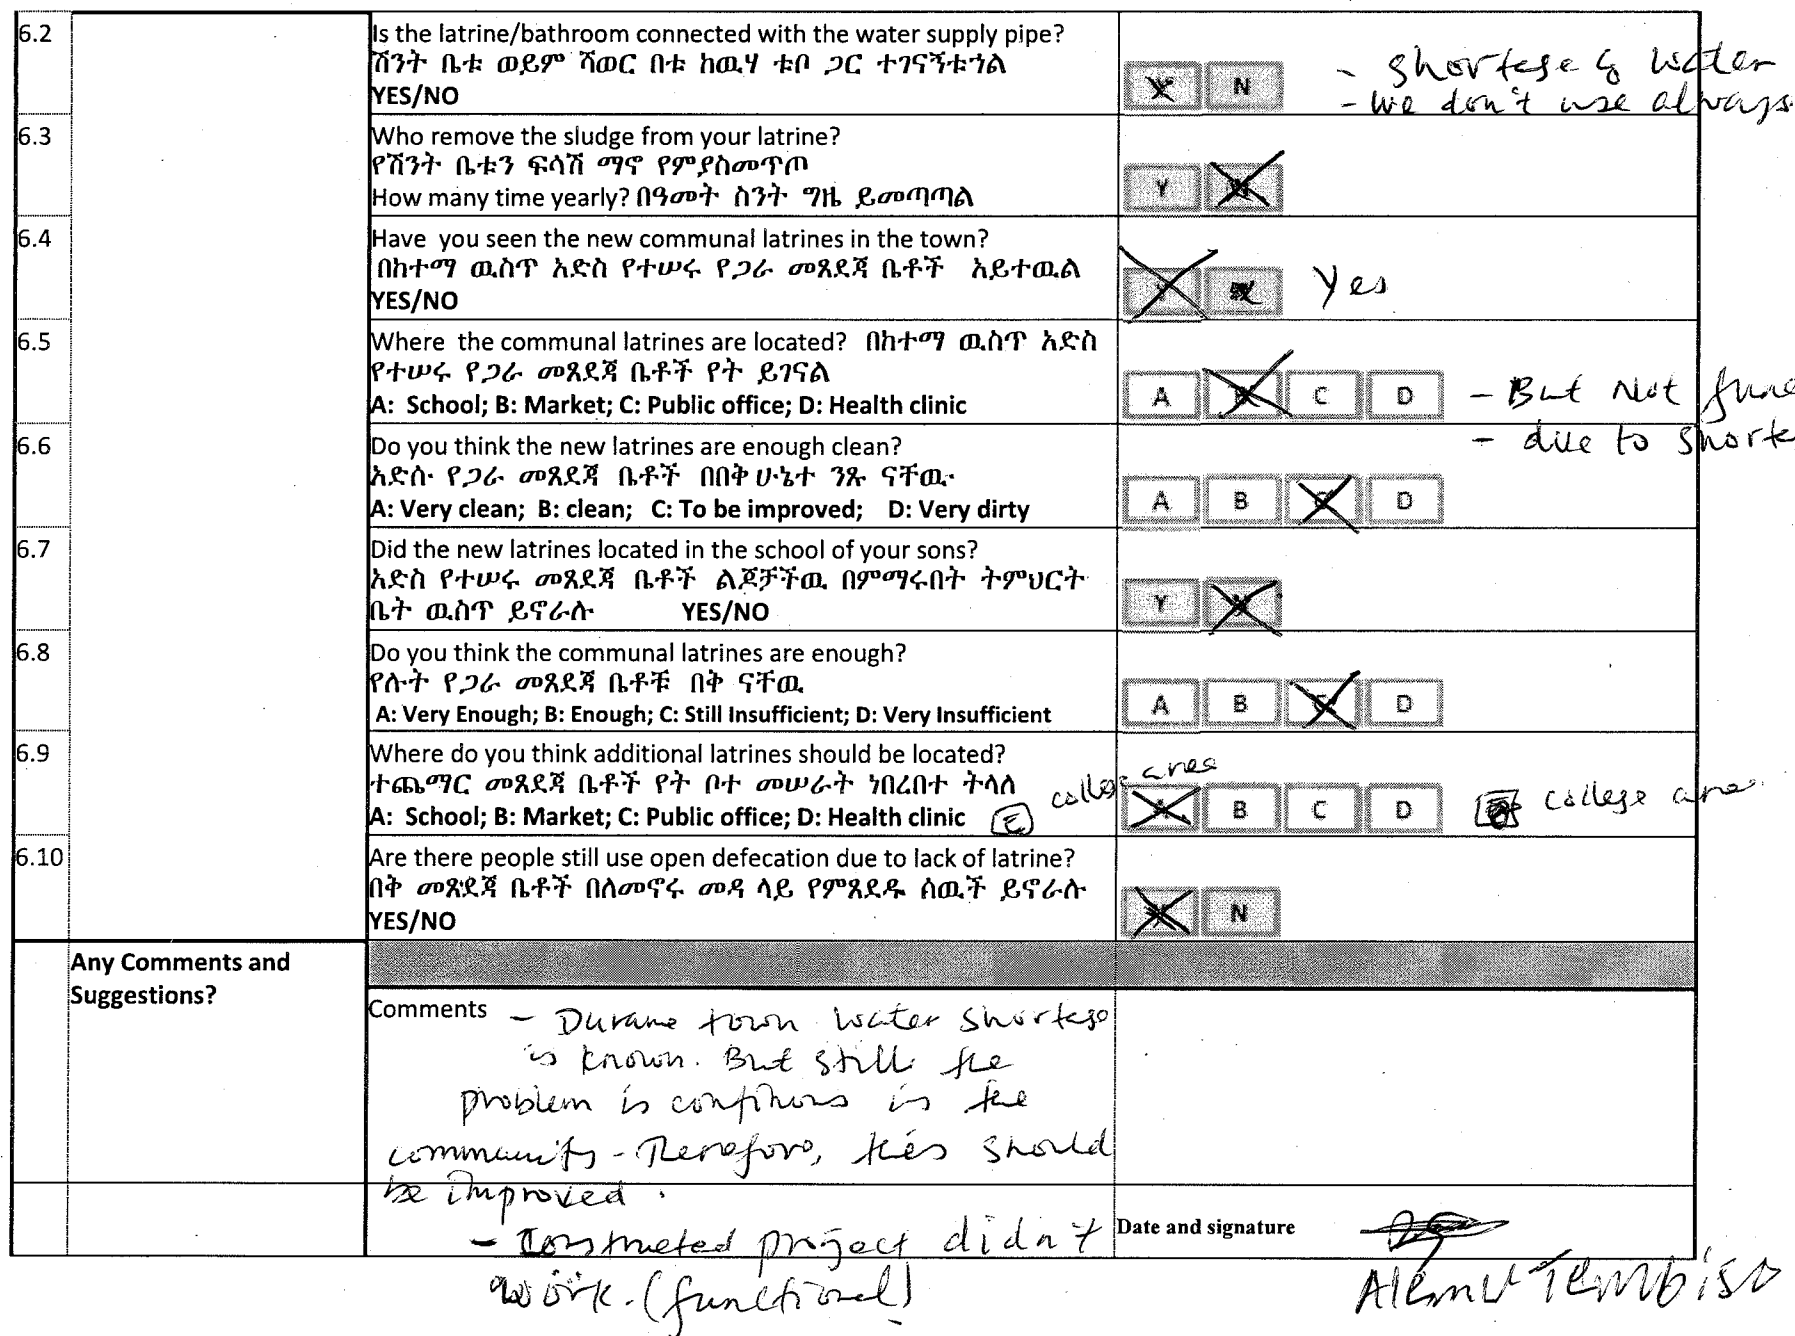 6.2
Is the latrine/bathroom connected with the water supply pipe?
ሽንት ቤቱ ወይም ሻወር በቱ ከዉሃ ቱቦ ጋር ተገናኝቱኀል
YES/NO
Y N
- shortage of water
- we don't use always
6.3
Who remove the sludge from your latrine?
የሽንት ቤቱን ፍሳሽ ማኖ የምያስመጥጦ
How many time yearly? በዓመት ስንት ግዜ ይመጣጣል
Y N
6.4
Have you seen the new communal latrines in the town?
በከተማ ዉስጥ አድስ የተሠሩ የጋራ መጸደጃ ቤቶች አይተዉል
YES/NO
Y N Yes
6.5
Where the communal latrines are located? በከተማ ዉስጥ አድስ
የተሠሩ የጋራ መጸደጃ ቤቶች የት ይገናል
A: School; B: Market; C: Public office; D: Health clinic
A B C D
- But Not func
- due to shorte
6.6
Do you think the new latrines are enough clean?
አድሱ የጋራ መጸደጃ ቤቶች በበቅ ሁኔተ ንጹ ናቸዉ
A: Very clean; B: clean; C: To be improved; D: Very dirty
A B C D
6.7
Did the new latrines located in the school of your sons?
አድስ የተሠሩ መጸደጃ ቤቶች ልጆቻችዉ በምማሩበት ትምህርት
ቤት ዉስጥ ይኖራሉ YES/NO
Y N
6.8
Do you think the communal latrines are enough?
የሉት የጋራ መጸደጃ ቤቶቹ በቅ ናቸዉ
A: Very Enough; B: Enough; C: Still Insufficient; D: Very Insufficient
A B C D
6.9
Where do you think additional latrines should be located?
ተጨማር መጸደጃ ቤቶች የት ቦተ መሠራት ነበረበተ ትላለ
A: School; B: Market; C: Public office; D: Health clinic E college area
A B C D college area
6.10
Are there people still use open defecation due to lack of latrine?
በቅ መጽደጃ ቤቶች በለመኖሩ መዳ ላይ የምጸደዱ ሰዉች ይኖራሉ
YES/NO
Y N
Any Comments and
Suggestions?
Comments - Durame town water shortage
is known. But still the
problem is continous in the
community - Therefore, this should
be improved.
- Constructed project didn't
work. (functional)
Date and signature
Alemu Tembiso